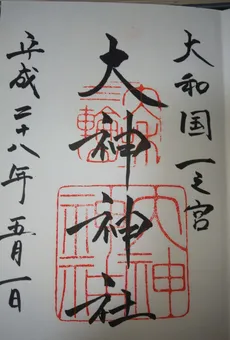 大和国一之宮
大神神社
平成二十八年五月一日
三輪
大神
神社